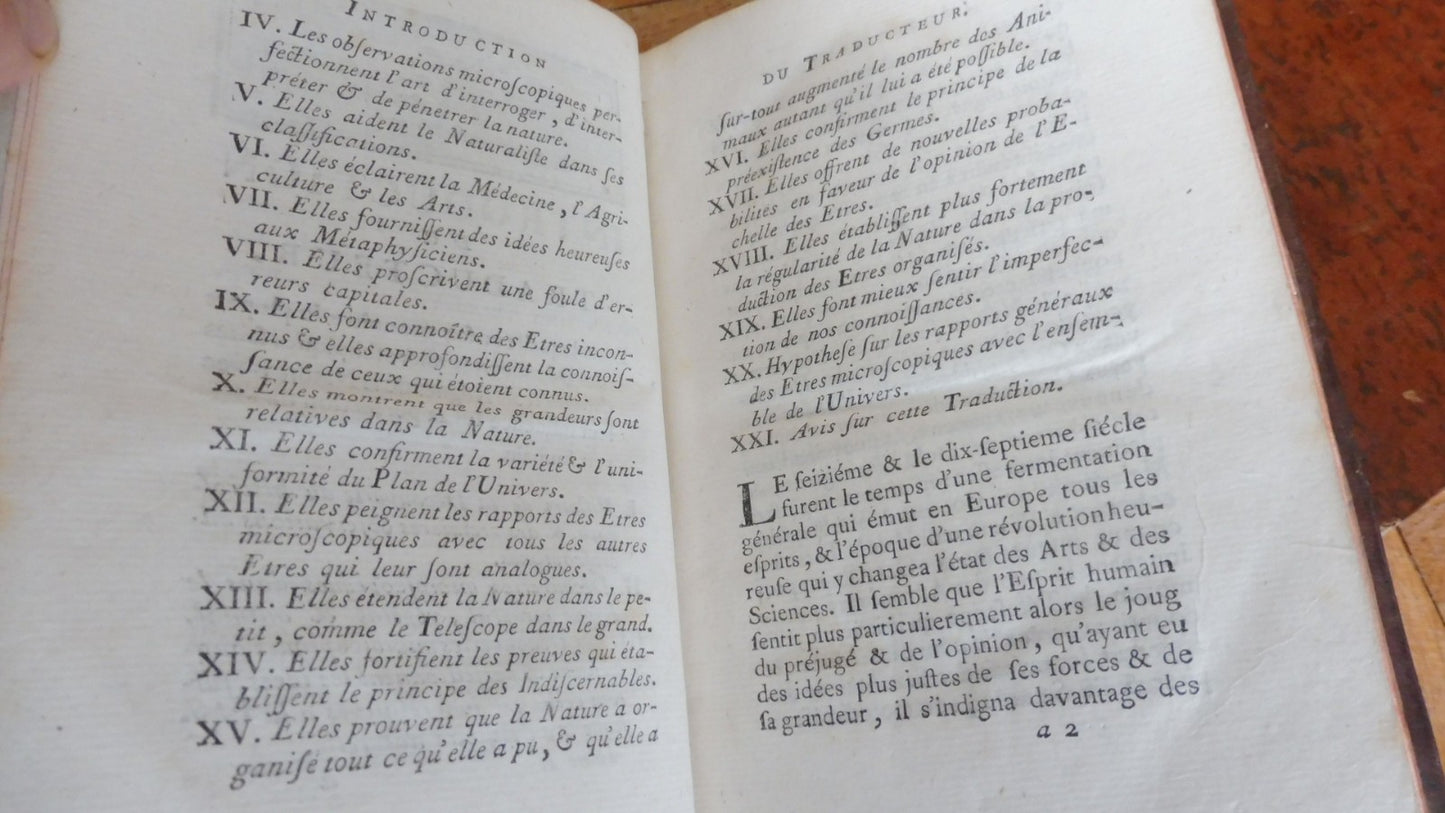 INTRODUCTION
IV. Les obſervations microſcopiques per-
fectionnent l'art d'interroger, d'inter-
préter & de pénetrer la nature.
V. Elles aident le Naturaliſte dans ſes
claſſifications.
VI. Elles éclairent la Médecine, l'Agri-
culture & les Arts.
VII. Elles fourniſſent des idées heureuſes
aux Métaphyſiciens.
VIII. Elles proſcrivent une foule d'er-
reurs capitales.
IX. Elles font connoître des Etres incon-
nus & elles approfondiſſent la connoiſ-
ſance de ceux qui étoient connus.
X. Elles montrent que les grandeurs ſont
relatives dans la Nature.
XI. Elles confirment la variété & l'uni-
formité du Plan de l'Univers.
XII. Elles peignent les rapports des Etres
microſcopiques avec tous les autres
Etres qui leur ſont analogues.
XIII. Elles étendent la Nature dans le pe-
tit, comme le Teleſcope dans le grand.
XIV. Elles fortifient les preuves qui éta-
bliſſent le principe des Indiſcernables.
XV. Elles prouvent que la Nature a or-
ganiſé tout ce qu'elle a pu, & qu'elle a
DU TRADUCTEUR.
ſur-tout augmenté le nombre des Ani-
maux autant qu'il lui a été poſſible.
XVI. Elles confirment le principe de la
préexiſtence des Germes.
XVII. Elles offrent de nouvelles proba-
bilités en faveur de l'opinion de l'E-
chelle des Etres.
XVIII. Elles établiſſent plus fortement
la régularité de la Nature dans la pro-
duction des Etres organiſés.
XIX. Elles font mieux ſentir l'imperfec-
tion de nos connoiſſances.
XX. Hypotheſe ſur les rapports généraux
des Etres microſcopiques avec l'enſem-
ble de l'Univers.
XXI. Avis ſur cette Traduction.
LE ſeiziéme & le dix-ſeptieme ſiécle
furent le temps d'une fermentation
générale qui émut en Europe tous les
eſprits, & l'époque d'une révolution heu-
reuſe qui y changea l'état des Arts & des
Sciences. Il ſemble que l'Eſprit humain
ſentit plus particulierement alors le joug
du préjugé & de l'opinion, qu'ayant eu
des idées plus juſtes de ſes forces & de
ſa grandeur, il s'indigna davantage des
a 2